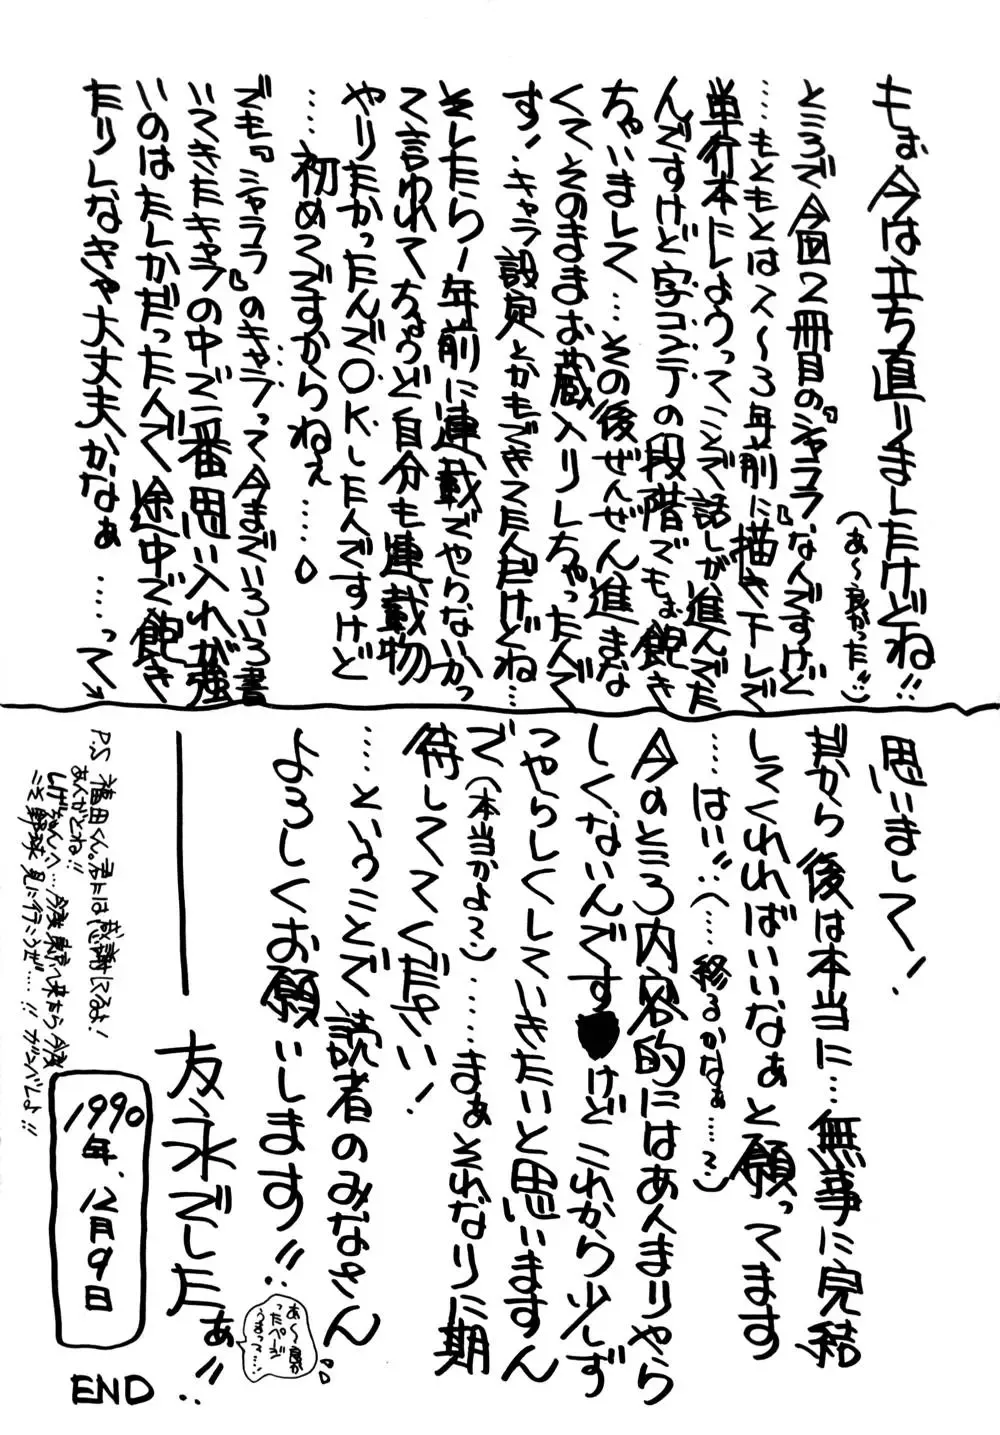 もぉ今は立ち直りましたけどね!!
(あ~良かった)
ところで今回2冊目の『シャララ』なんですけど
……もともとは2~3年前に描き下しで
単行本にしようってことで話しが進んでた
んですけど字コンテの段階でもぉ飽き
ちゃいまして…その後ぜんぜん進まな
くてそのままお蔵入りしちゃったんで
す!キャラ設定とかもできてたんだけどね…
そしたら1年前に連載でやらないかっ
て言われてちょうど自分も連載物
やりたかったんでOKしたんですけど
……初めてですからねぇ……
でも『シャララ』のキャラって今までいろいろ書
いてきたキャラの中で一番思い入れが強
いのはたしかだったんで途中で飽き
たりしなきゃ大丈夫かなぁ……って
思いまして!
だから後は本当に…無事に完結
してくれればいいなぁと願ってます
……はい(……終るかなぁ……)
今のところ内容的にはあんまりやら
しくないんです♥けどこれから少しず
つやらしくしていきたいと思いますん
で(本当かよ~)……まぁそれなりに期
待しててください!
……ということで読者のみなさん
よろしくお願いします!!
――友永でしたぁ!!
あ~良か
ったページ
うまって…!
P.S 福田くん。君には感謝してるよ!
あんがとね!!
しげちゃんへ…今度東京へ来たら今度
こそ野球見に行こうぜ……!!ガンバしょ!!
1990年、12月9日
END